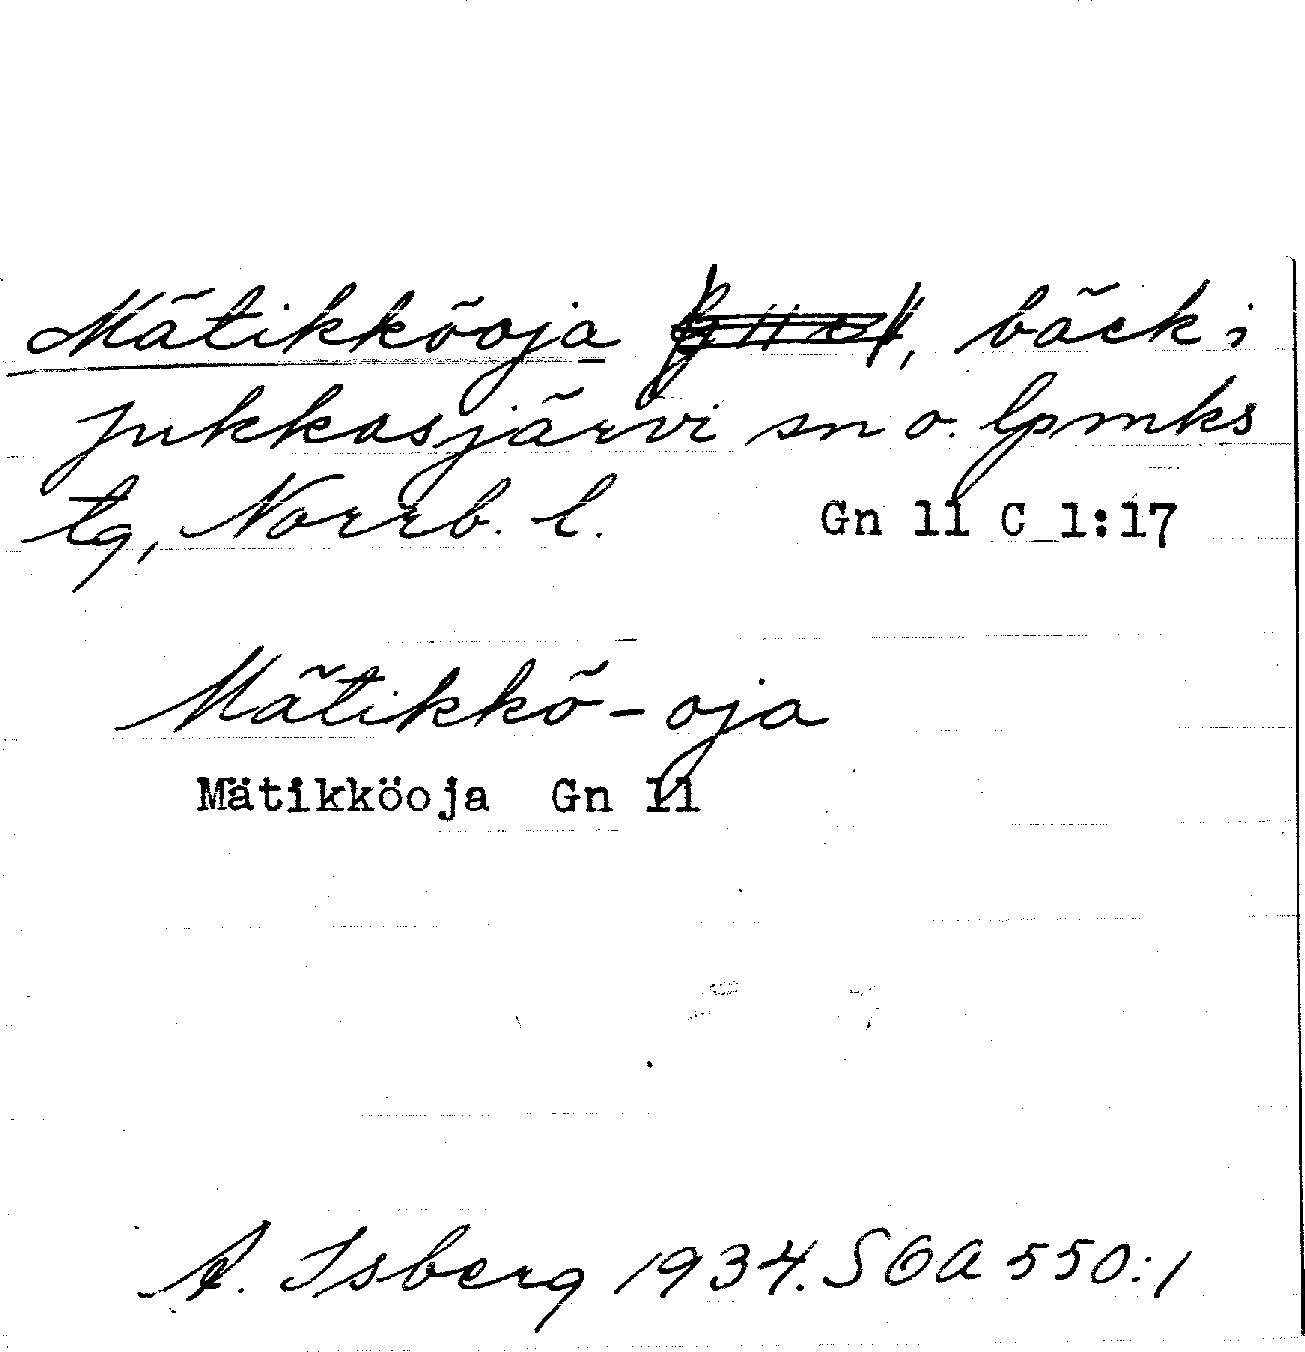 Mätikköoja , bäck i
Jukkasjärvi sn o. lpmks
tg, Norrb. l. Gn 11 C 1:17
Mätikkö-oja
Mätikköoja Gn 11
A. Isberg 1934. SOA 550:1